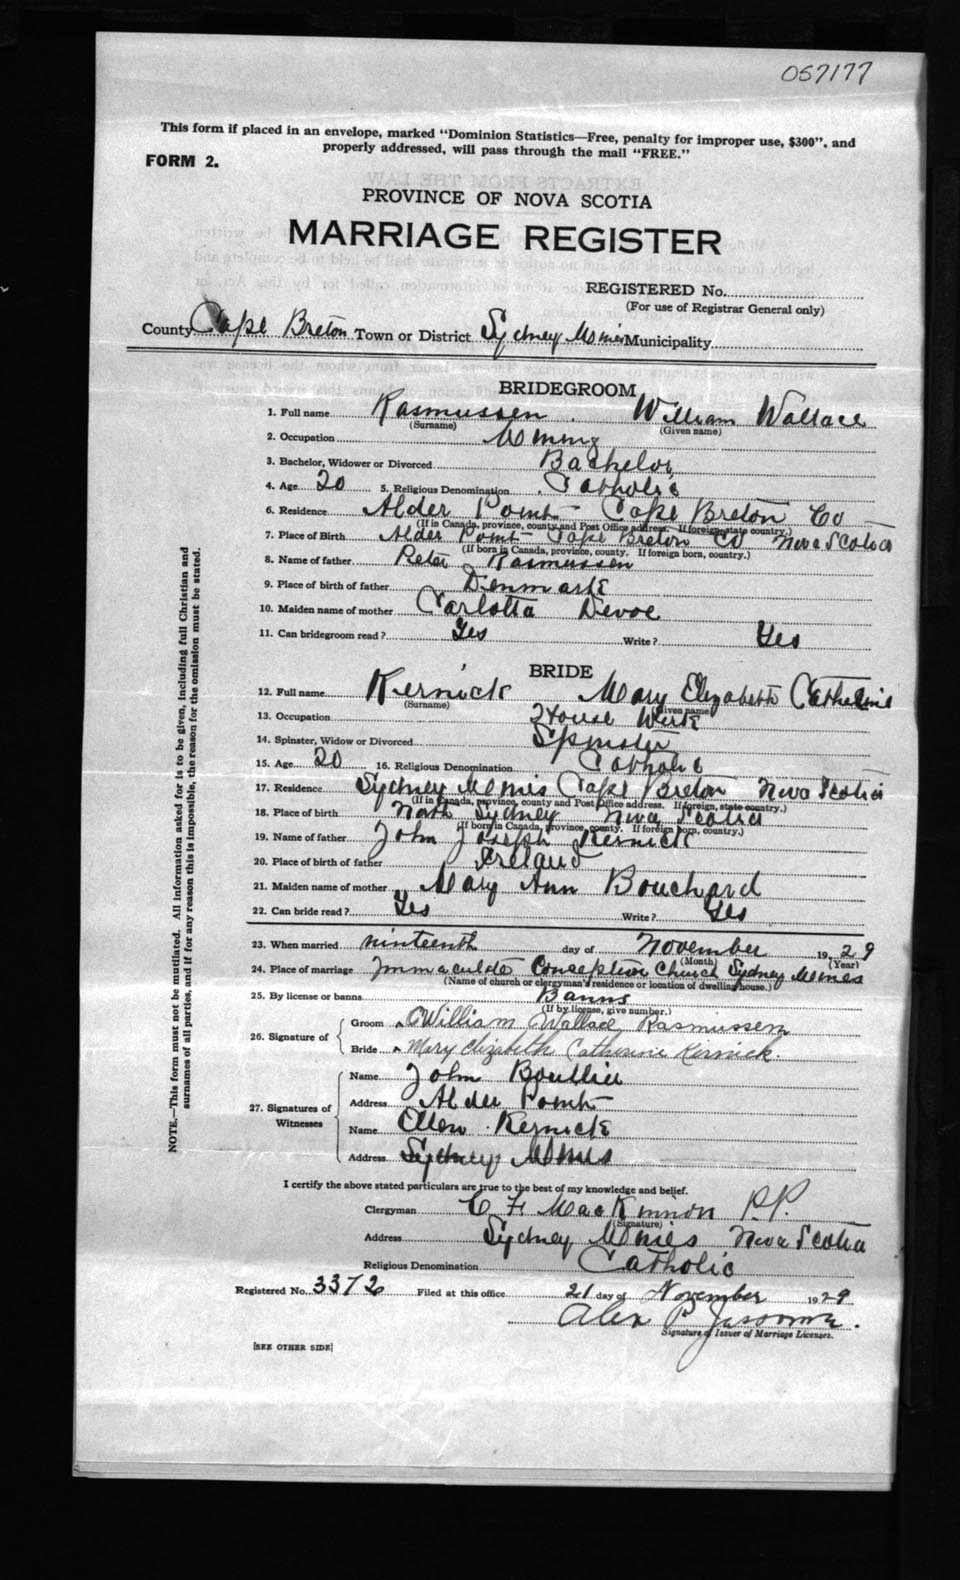 057177
This form if placed in an envelope, marked "Dominion Statistics—Free, penalty for improper use, $300", and
properly addressed, will pass through the mail "FREE."
FORM 2.
PROVINCE OF NOVA SCOTIA
MARRIAGE REGISTER
REGISTERED No.
(For use of Registrar General only)
County Cape Breton Town or District Sydney Mines Municipality
BRIDEGROOM
1. Full name Rasmussen William Wallace
(Surname) (Given name)
2. Occupation Mining
3. Bachelor, Widower or Divorced Bachelor
4. Age 20 5. Religious Denomination Catholic
6. Residence Alder Point Cape Breton Co
(If in Canada, province, county and Post Office address. If foreign, state country.)
7. Place of Birth Alder Point Cape Breton Co Nova Scotia
(If born in Canada, province, county. If foreign born, country.)
8. Name of father Peter Rasmussen
9. Place of birth of father Denmark
10. Maiden name of mother Carlotta Devoe
11. Can bridegroom read? Yes Write? Yes
BRIDE
12. Full name Kernick Mary Elizabeth Catherine
(Surname) (Given name)
13. Occupation House Work
14. Spinster, Widow or Divorced Spinster
15. Age 20 16. Religious Denomination Catholic
17. Residence Sydney Mines Cape Breton Nova Scotia
(If in Canada, province, county and Post Office address. If foreign, state country.)
18. Place of birth North Sydney Nova Scotia
(If born in Canada, province, county. If foreign born, country.)
19. Name of father John Joseph Kernick
20. Place of birth of father Ireland
21. Maiden name of mother Mary Ann Bouchard
22. Can bride read? Yes Write? Yes
23. When married nineteenth day of November 1929
(Month) (Year)
24. Place of marriage Immaculate Conception Church Sydney Mines
(Name of church or clergyman's residence or location of dwelling house.)
25. By license or banns Banns
(If by license, give number.)
26. Signature of
Groom William Wallace Rasmussen
Bride Mary Elizabeth Catherine Kernick.
27. Signatures of Witnesses
Name John
Address Alder Point
Name Ellen Kernick
Address Sydney Mines
I certify the above stated particulars are true to the best of my knowledge and belief.
Clergyman C F MacKinnon P.P.
(Signature)
Address Sydney Mines Nova Scotia
Religious Denomination Catholic
Registered No. 3372 Filed at this office 21 day of November 1929
Alex P
Signature of Issuer of Marriage Licenses.
[SEE OTHER SIDE]
NOTE.—This form must not be mutilated. All information asked for is to be given, including full Christian and
surnames of all parties, and if for any reason this is impossible, the reason for the omission must be stated.